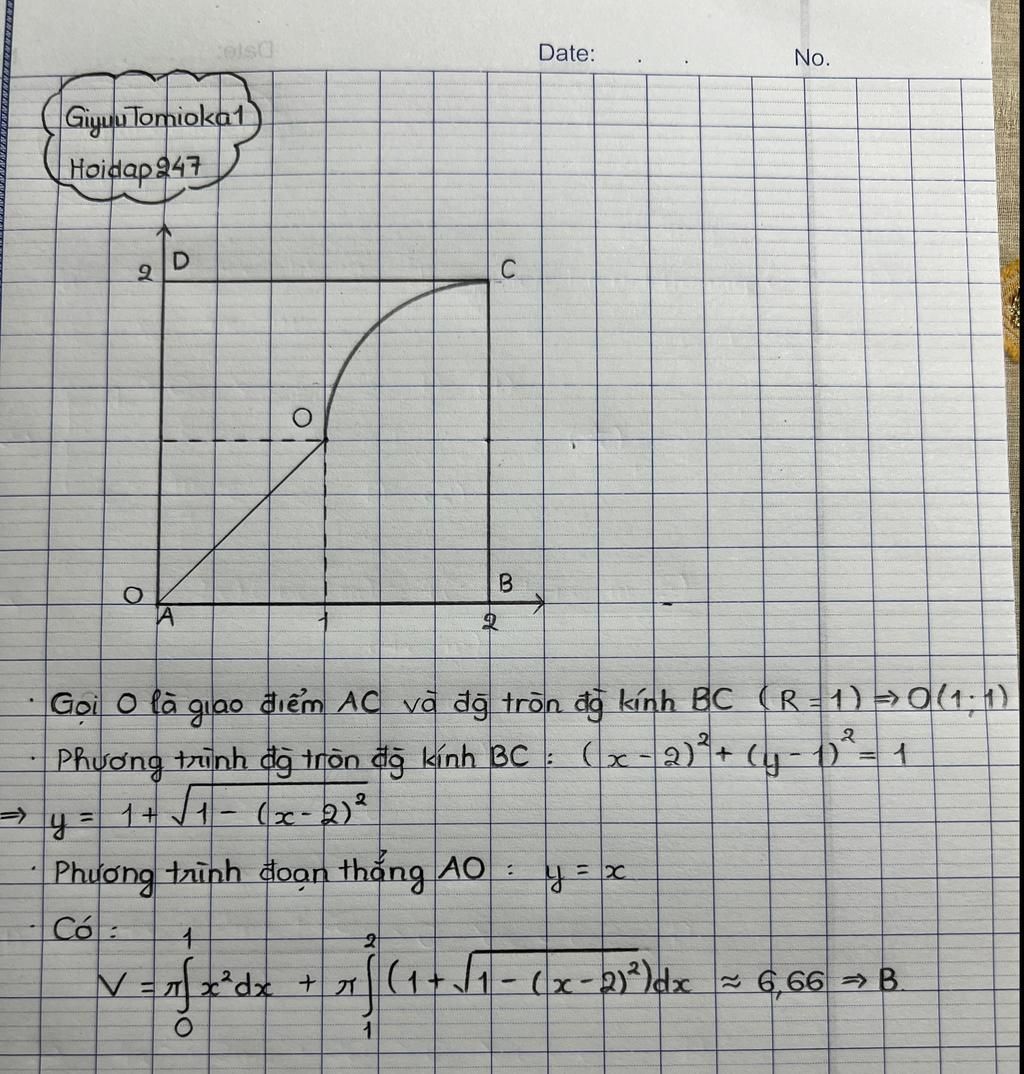 Date: . . No.
GiyuuTomioka1
Hoidap247
2 D C
O
O B
A 1 2
· Gọi O là giao điểm AC và đg tròn đg kính BC (R = 1) ⇒ O(1; 1)
· Phương trình đg tròn đg kính BC : (x - 2)² + (y - 1)² = 1
⇒ y = 1 + √(1 - (x - 2)²)
· Phương trình đoạn thẳng AO : y = x
· Có :
V = π∫₀¹ x²dx + π∫₁² (1 + √(1 - (x - 2)²))dx ≈ 6,66 ⇒ B.